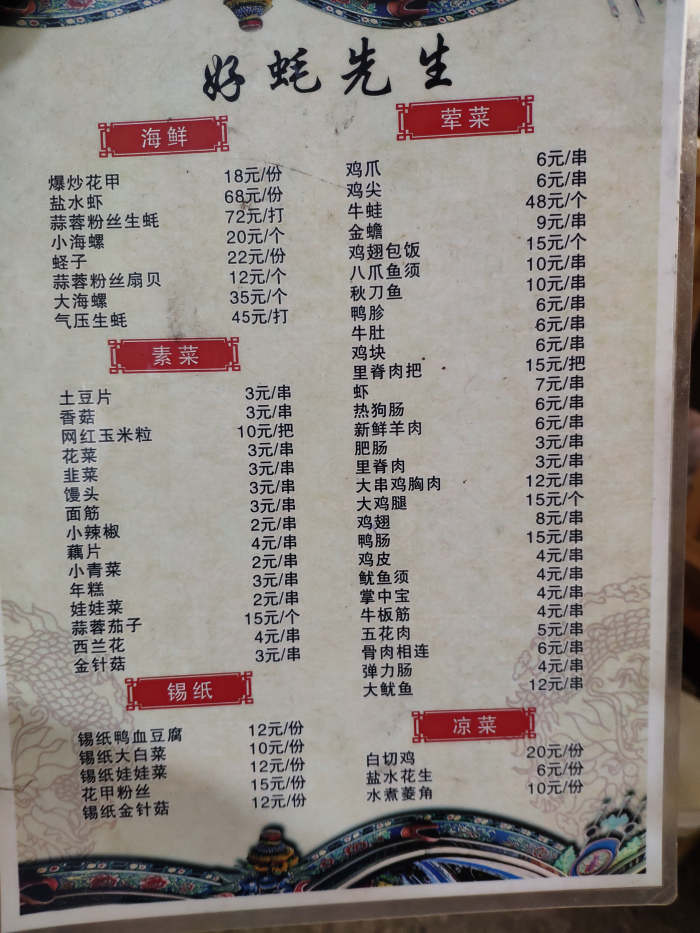 好蚝先生
海鲜
爆炒花甲 18元/份
盐水虾 68元/份
蒜蓉粉丝生蚝 72元/打
小海螺 20元/个
蛏子 22元/份
蒜蓉粉丝扇贝 12元/个
大海螺 35元/个
气压生蚝 45元/打
素菜
土豆片 3元/串
香菇 3元/串
网红玉米粒 10元/把
花菜 3元/串
韭菜 3元/串
馒头 3元/串
面筋 3元/串
小辣椒 2元/串
藕片 4元/串
小青菜 2元/串
年糕 3元/串
娃娃菜 2元/串
蒜蓉茄子 15元/个
西兰花 4元/串
金针菇 3元/串
锡纸
锡纸鸭血豆腐 12元/份
锡纸大白菜 10元/份
锡纸娃娃菜 12元/份
花甲粉丝 15元/份
锡纸金针菇 12元/份
荤菜
鸡爪 6元/串
鸡尖 6元/串
牛蛙 48元/个
金蟾 9元/串
鸡翅包饭 15元/个
八爪鱼须 10元/串
秋刀鱼 10元/串
鸭胗 6元/串
牛肚 6元/串
鸡块 6元/串
里脊肉把 15元/把
虾 7元/串
热狗肠 6元/串
新鲜羊肉 6元/串
肥肠 3元/串
里脊肉 3元/串
大串鸡胸肉 12元/串
大鸡腿 15元/个
鸡翅 8元/串
鸭肠 15元/串
鸡皮 4元/串
鱿鱼须 4元/串
掌中宝 4元/串
牛板筋 4元/串
五花肉 5元/串
骨肉相连 6元/串
弹力肠 4元/串
大鱿鱼 12元/串
凉菜
白切鸡 20元/份
盐水花生 6元/份
水煮菱角 10元/份